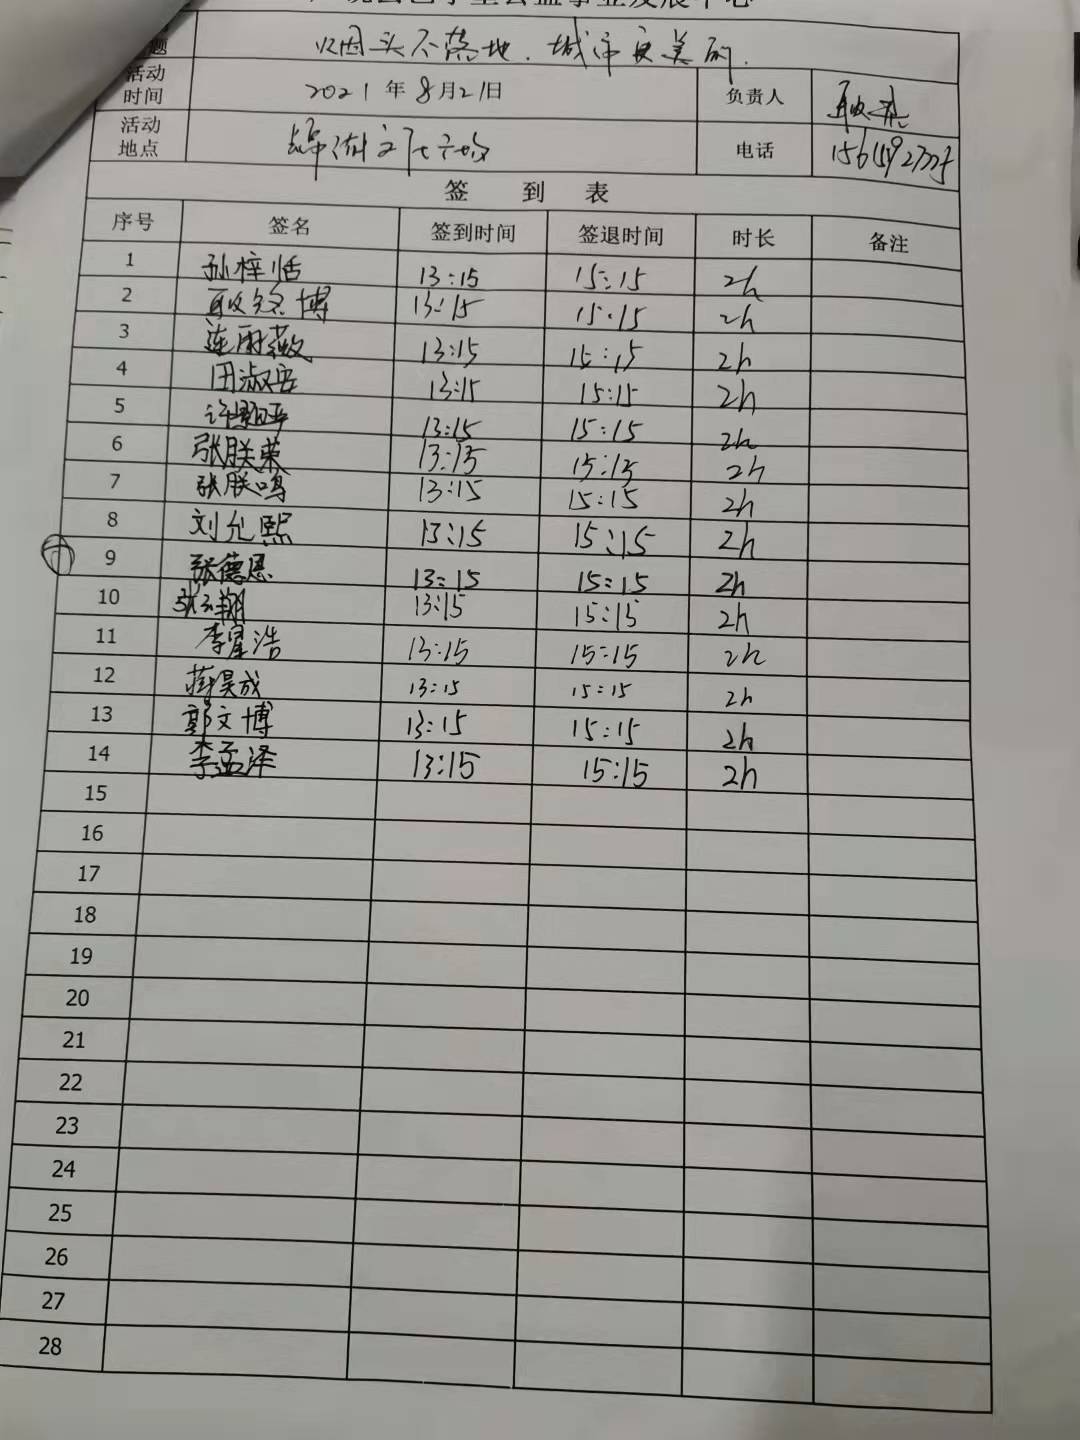 题 烟头不落地.城市更美丽.
活动时间 2021年8月21日 负责人
活动地点 电话
签 到 表
序号 签名 签到时间 签退时间 时长 备注
1 孙梓恬 13:15 15:15 2h
2 13:15 15:15 2h
3 连雨薇 13:15 15:15 2h
4 田淑岳 13:15 15:15 2h
5 13:15 15:15 2h
6 张朕荣 13:15 15:15 2h
7 张朕鸣 13:15 15:15 2h
8 刘允熙 13:15 15:15 2h
9 张德恩 13:15 15:15 2h
10 13:15 15:15 2h
11 李星浩 13:15 15:15 2h
12 蒋昊成 13:15 15:15 2h
13 郭文博 13:15 15:15 2h
14 李孟泽 13:15 15:15 2h
15
16
17
18
19
20
21
22
23
24
25
26
27
28